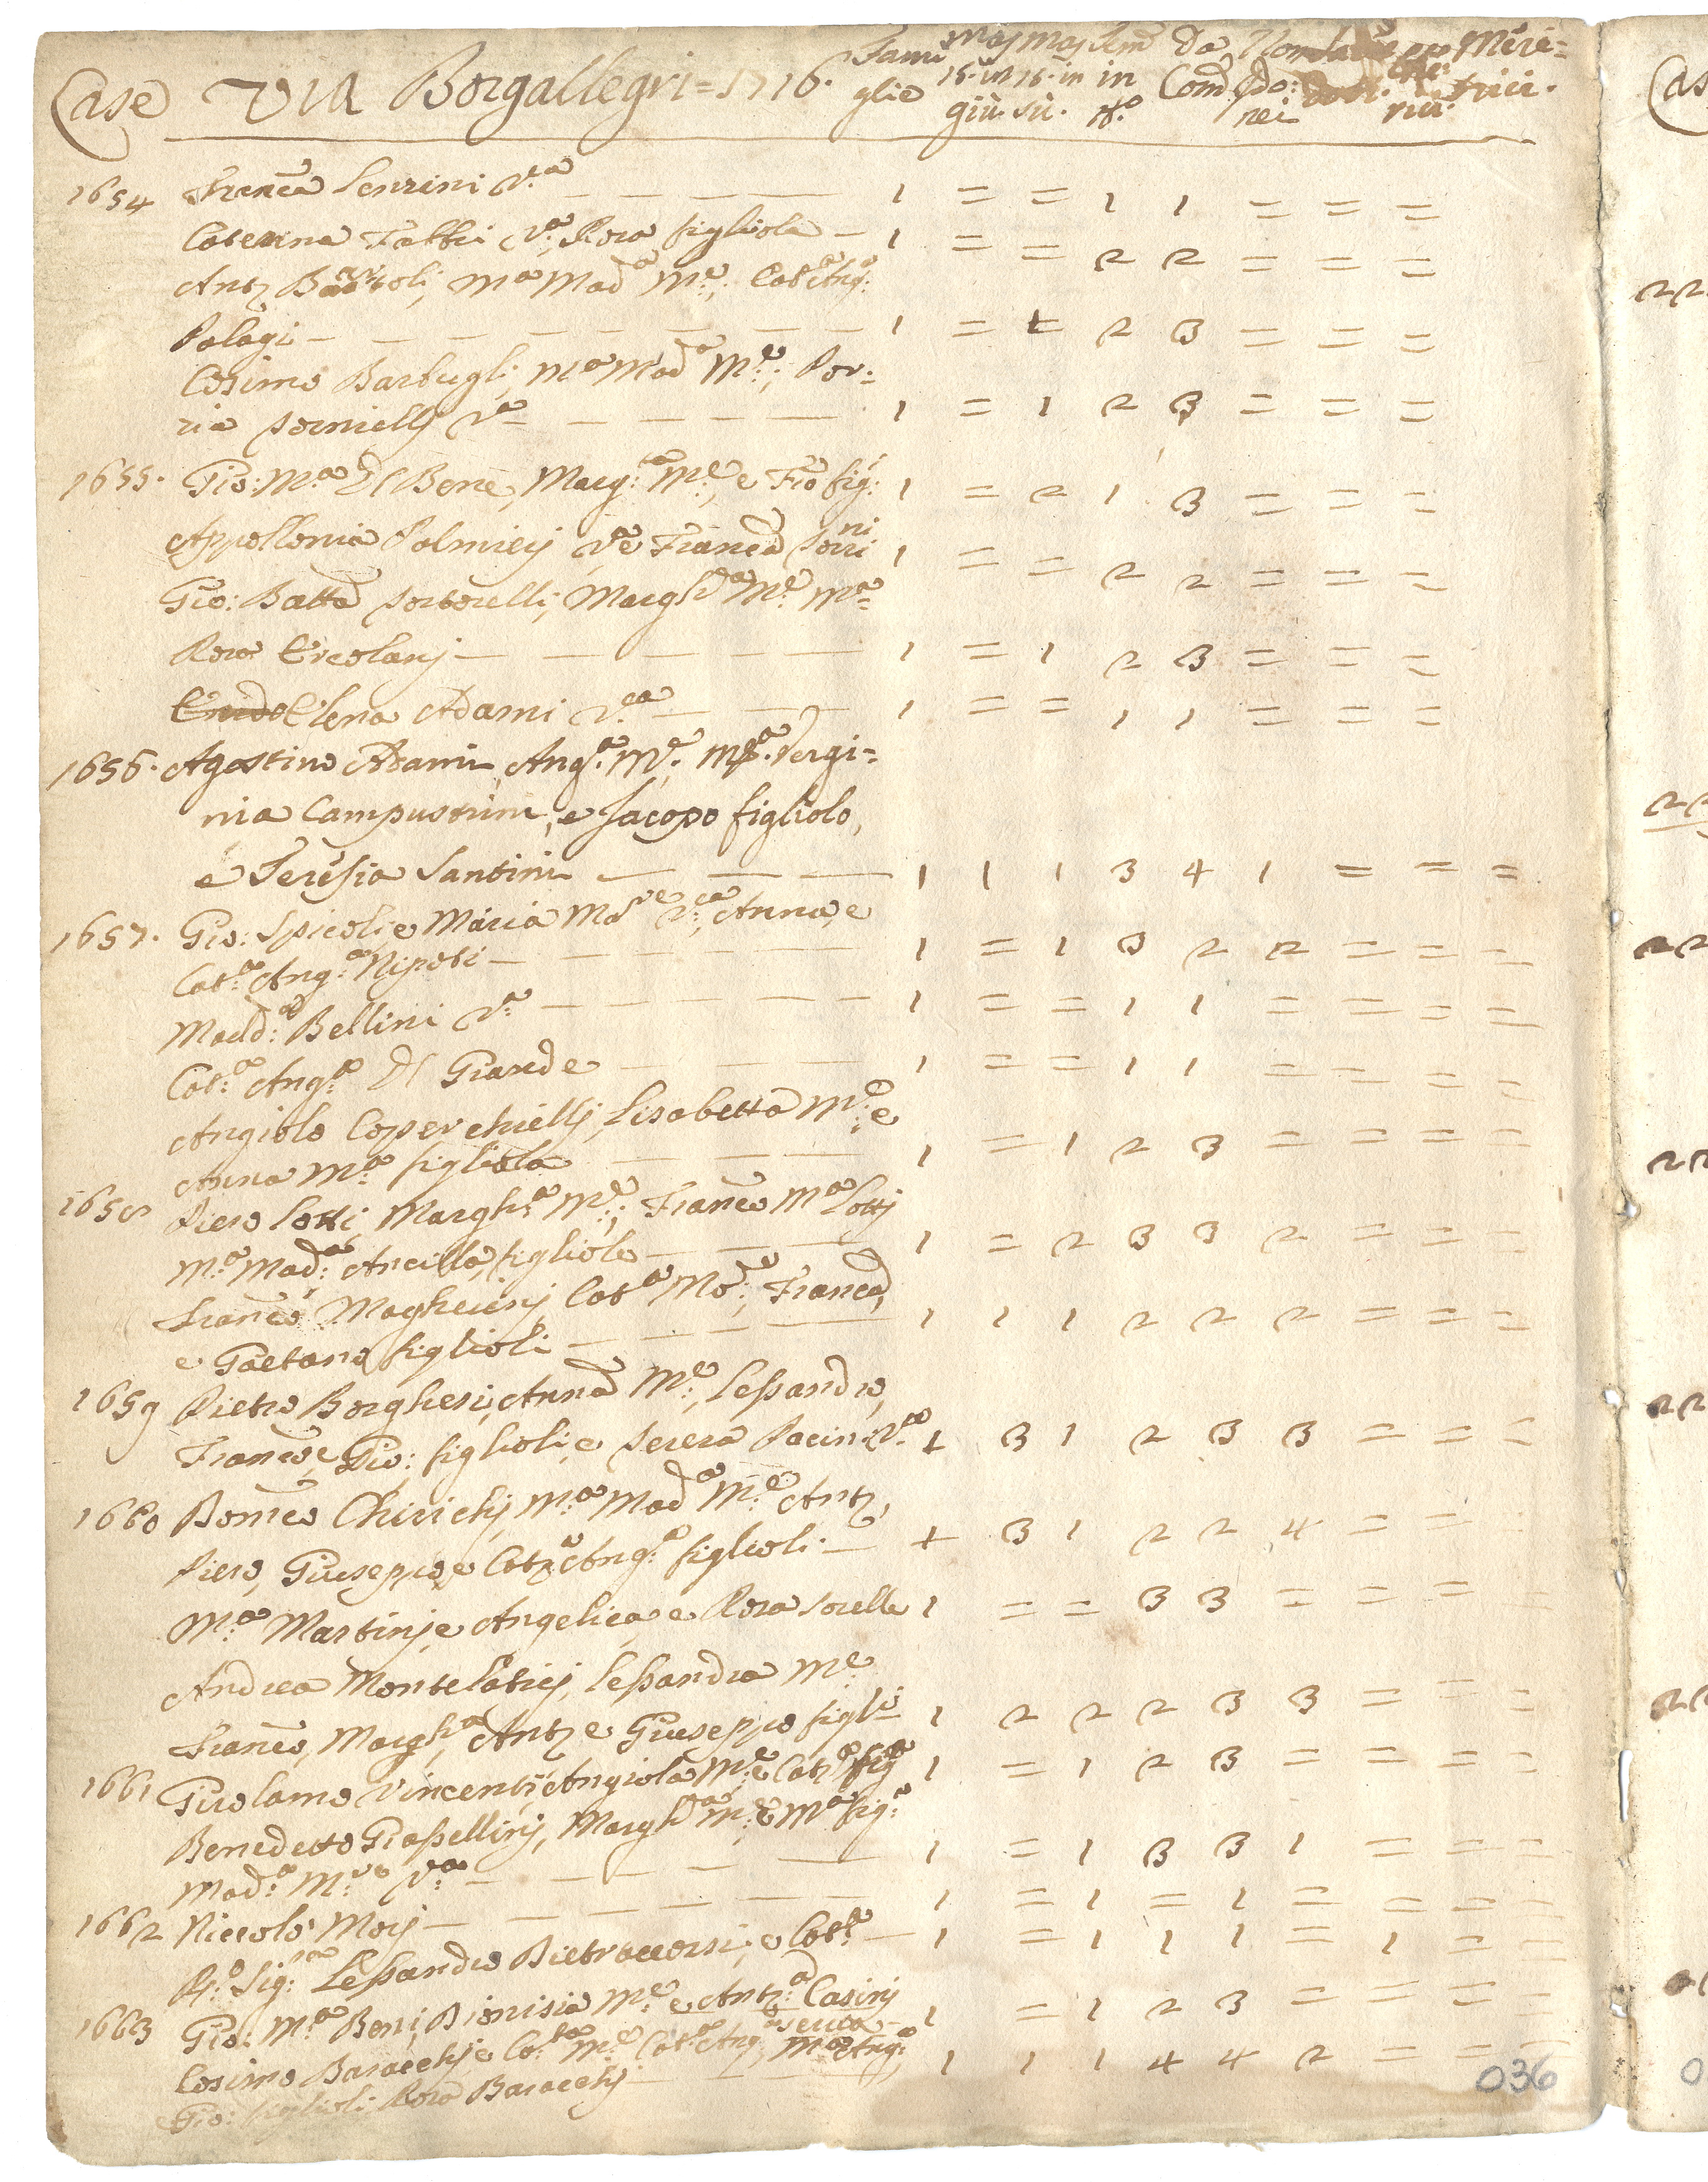 Case Via Borgallegri = 1716. Fami glie Mas 15. in giù. Mas 15. in sù. Fem in N.o Da Com: Non Che rici. Mere= trici.
1654 Franc.a Lenzini V.a 1 = = 1 1 = = =
Caterina Fabbri V.a Rosa figliola 1 = = 2 2 = = =
Ant.o Bartoli, M.a Mad.a M.e, Cat.a Ang.a
Palagi 1 = 1 2 3 = = =
Cosimo Barbugli, M.a Mad.a M.e; Por:
zia Sornielli V.a 1 = 1 2 3 = = =
1655. Gio: M.a Del Bene, Marg.ta M.e, e Fr.o fig: 1 = 2 1 3 = = =
Appollonia Palmieri V.a e Franc.a Sorini 1 = = 2 2 = = =
Gio: Batta Sortorelli, Margh.a M.e M.a
Rosa Ercolani 1 = 1 2 3 = = =
Elena Adami V.a 1 = = 1 1 = = =
1656. Agostino Adami, Ang.a M.e, M.a Vergi=
nia Campustrini, e Jacopo figliolo,
e Teresia Santini 1 1 1 3 4 1 = = =
1657. Gio: Spicoli, e Maria Mad.e V.a, Anna, e
Cat.a Ang.a Nipoti 1 = 1 3 2 2 = = =
Madd.a Bellini V.a 1 = = 1 1 = = = =
Cat.a Ang.a Del Grande 1 = = 1 1 = = = =
Angiolo Coperchielli, Lisabetta M.e, e
Anna M.a figliola 1 = 1 2 3 = = = =
1658 Piero Lotti, Margh.a M.e, Franc.o M.a Lotti
M.a Mad.a Ancilla figliole 1 = 2 3 3 2 = = =
Franc.o Magherini Cat.a Mo.e, Franc.a,
e Gaetano figlioli 1 1 1 2 2 2 = = =
1659 Pietro Borghesi, Anna M.e, Lessandro,
Franc.o, e Gio: figlioli, e Serera Pacini V.a 1 3 1 2 3 3 = = =
1660 Dom.co Chirichi, M.a Mad.a M.e Ant.o,
Piero, Giuseppe, e Cat.a Ang.a figlioli 1 3 1 2 2 4 = =
M.a Martini, e Angelica, e Rosa sorelle 1 = = 3 3 = = = =
Andrea Montelatici, Lessandra M.e
Franc.o, Margh.a Ant.o e Giuseppe figli 1 2 2 2 3 3 = = =
1661 Girolamo Vincenti, Angiola M.e e Cat.a fig.a 1 = 1 2 3 = = = =
Benedetto Grassellini, Margh.a M.e, e M.a fig.a
Mad.a M.re V.a 1 = 1 3 3 1 = = =
1662 Niccolò Mori 1 = 1 = 1 = = = =
R.o Sig.re Lessandro Pietraccorsi, e Cat.a 1 = 1 1 1 = 1 = =
1663 Gio: M.a Boni, Dionisia M.e, e Ant.a Casini 1 = 1 2 3 = = = =
serva
Cosimo Baracchi, e Cat.a M.e Cat.a Ang.a, M.a Ang.a, 1 1 1 4 4 2 = = =
e Gio: figlioli, Rosa Baracchi
036